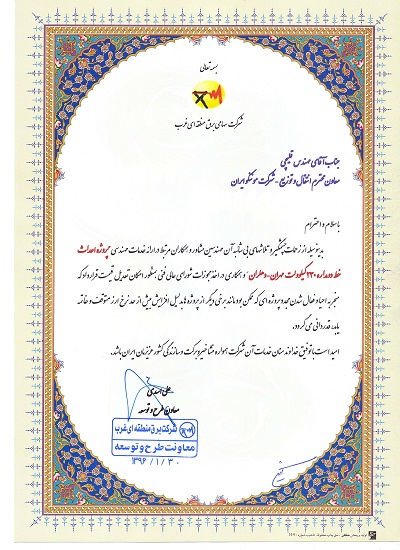 بسمه تعالی
شرکت سهامی برق منطقه ای غرب
جناب آقای مهندس قلیچی
معاون محترم انتقال و توزیع - شرکت موننکو ایران
با سلام و احترام
بدینوسیله از زحمات پیگیر و تلاشهای بی شائبه آن مهندسین مشاور و همکاران مرتبط در ارائه خدمات مهندسی پروژه احداث
خط دو مداره ۲۳۰ کیلوولت مهران - دهلران و همکاری در اخذ مجوزات شورای عالی فنی بمنظور امکان تعدیل قیمت قرارداد که
منجر به احیاء و فعال شدن مجدد پروژه ای که ممکن بود مانند برخی دیگر از پروژه ها بدلیل افزایش بیش از حد نرخ ارز متوقف و خاتمه
یابد، قدردانی می گردد.
امید است با توفیق خداوند منان خدمات آن شرکت همواره منشأ خیر و برکت و سازندگی کشور عزیزمان ایران باشد.
علی اسدی
معاون طرح و توسعه
شرکت برق منطقه ای غرب
معاونت طرح و توسعه
۱۳۹۶/۱/۳۰